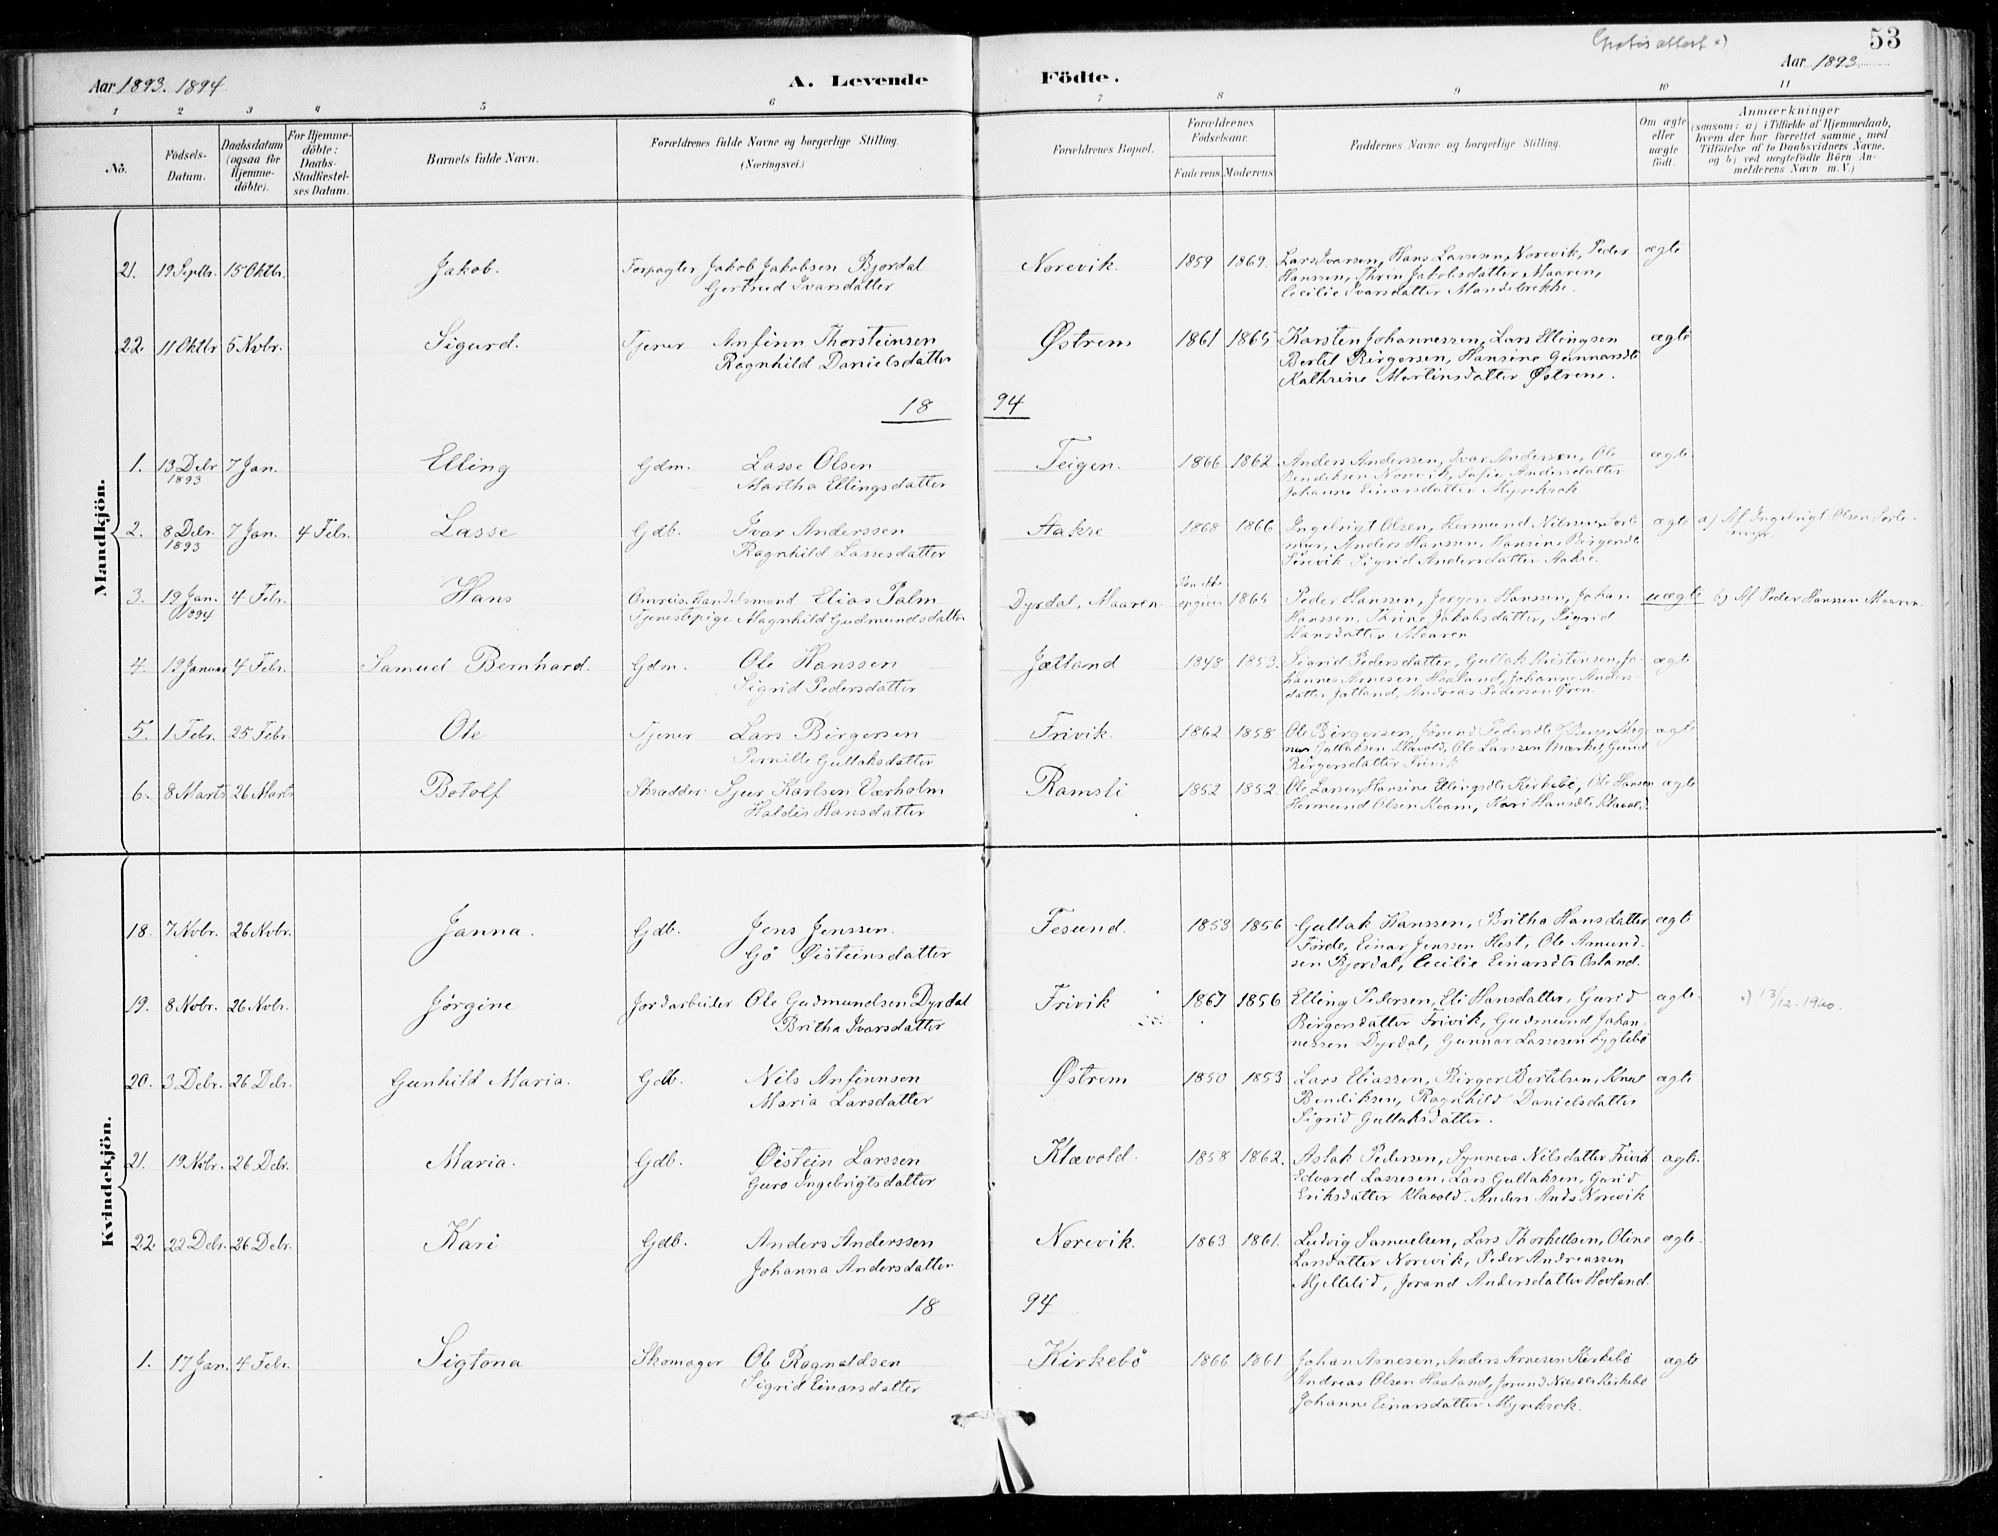 Gratisattest ×)
53
Aar 1893. 1894
A. Levende Födte.
Aar 1893
1 2 3 4 5 6 7 8 9 10 11
No.
Födsels-Datum.
Daabsdatum (ogsaa for Hjemmedöbte).
For Hjemmedöbte: Daabs-Stadfæstelses Datum.
Barnets fulde Navn.
Forældrenes fulde Navne og borgerlige Stilling. (Næringsvei.)
Forældrenes Bopæl.
Forældrenes Födselsaar.
Faderens. Moderens.
Faddernes Navne og borgerlige Stilling.
Om ægte eller uægte födt.
Anmærkninger
(saasom: a) i Tilfælde af Hjemmedaab, hvem der har forrettet samme, med Tilföielse af to Daabsvidners Navne, og b) ved uægtefödte Börn Anmelderens Navn m. V.)
Mandkjön.
21. 19 Septbr. 15 Oktbr. Jakob. Forpagter Jakob Jakobsen Bjordal Norevik. 1859 1869. Lars Ivarsen, Hans Lassesen, Norevik, Peder ægte
Gertrud Ivarsdatter Hanssen, Thrin Jakobsdatter, Maaren,
Cecilie Ivarsdatter Mandebrekke.
22. 11 Oktbr 5 Nvbr. Sigurd. Tjener Anfinn Thorsteinsen Østrem 1861 1865 Karsten Johannessen, Lars Ellingsen ægte
Ragnhild Danielsdatter Bertil Birgersen, Hansine Gunnarsdtr
Kathrine Martinsdatter Østrem.
18 94
1. 13 Debr 7 Jan. Elling Gdm. Lasse Olsen Teigen. 1866 1862. Anders Anderssen, Ivar Andersen, Ole ægte
1893 Martha Ellingsdatter Bendiksen Norevik, Sofie Andersdatter
Johanne Einarsdatter Myrekrok
2. 8 Debr. 7 Jan. 4 Febr. Lasse Gdb. Ivar Anderssen Aakre 1868 1866 Ingebrigt Olsen, Hermund Nilssen, Sørle- ægte a) Af Ingebrigt Olsen Sørle-
1893 Ragnhild Lassesdatter myr, Anders Hanssen, Hansine Birgersdtr myr.
Sørevik Sigrid Andersdatter Aakre.
3. 19 Jan. 4 Febr. Hans Omreis. Handelsmand Elias Palm Dyrdal, Maaren. opgives 1865 Peder Hanssen, Jørgen Hanssen, Johan uægte b) Af Peder Hanssen Maaren.
1894 Tjenestepige Magnhild Gudmundsdatter Hanssen, Thrine Jakobsdatter, Sigrid
Hansdatter Maaren
4. 19 Januar 4 Febr. Samuel Bernhard. Gdm. Ole Hanssen Jøtland 1848 1853. Sigrid Pedersdatter, Gullak Kristensen, Jo- ægte
Sigrid Pedersdatter hannes Arnesen Haaland, Johanne Anders-
datter Jøtland, Andreas Pederson Øren.
5. 1 Febr. 25 Febr. Ole Tjener Lars Birgersen Frivik. 1862 1858 Ole Birgersen, ægte
Pernille Gullaksdatter Gullaksen Klævold, Ole Larssen
Birgersdatter Frivik
6. 8 Marts 26 Marts Botolf Skrædder Sjur Karlsen Værholm Ramsli 1852 1852. Ole Lassen, Hansine Ellingsdtr Kirkebø, Ole Hansen ægte
Haldis Hansdatter Hermund Olsen Kvam, Kari Hansdtr Klævold.
Kvindekjön.
18. 7 Nvbr. 26 Nvbr. Janna. Gdb. Jens Jenssen. Fesund. 1853 1856 Gullak Hanssen, Britha Hansdatter ægte
Gjø Øisteinsdatter Førde, Einar Jenssen Hest, Ole Amund-
sen Bjordal, Cecilie Einarsdtr Osland.
19. 8 Nvbr. 26 Nvbr. Jørgine Jordarbeider Ole Gudmundsen Dyrdal Frivik 1867 1856 Elling Pedersen, Eli Hansdatter, Gurid ægte. ×) 13/12. 1920.
Britha Ivarsdatter Birgersdatter Frivik, Gudmund Johan-
nessen Dyrdal, Gunnar Lassesen Lyglebø
20. 3 Debr. 26 Debr. Gunhild Maria. Gdb. Nils Anfinnsen Østrem 1850 1853 Lars Eliassen, Birger Bertelsen, Knut ægte
Maria Larsdatter Bendiksen, Ragnhild Danielsdatter
Sigrid Gullaksdatter.
21. 19 Nvbr. 26 Debr. Maria. Gdb. Øistein Larssen Klævold. 1858 1862. Aslak Pedersen, Synneva Nilsdatter Frivik ægte.
Guro Ingebrigtsdatter Edvard Lassesen, Lars Gullaksen, Gurid
Eriksdatter Klævold. Anders Ands Norevik
22 22 Debr. 26 Debr. Kari Gdb. Anders Anderssen Norevik. 1863 1861. Ludvig Samuelsen, Lars Thorkelsen, Oline ægte.
Johanna Andersdatter Larsdatter Norevik, Peder Andreassen
Mjellelid, Jorand Andersdatter Hovland
18 94
1. 17 Jan. 4 Febr. Sigtona Skomager Ole Ragnaldsen Kirkebø 1866 1861 Johan Asnesen, Anders Arnesen Kirkebø ægte
Sigrid Einarsdatter Andreas Olsen Haaland, Jorund Kirkebø
Johanne Einarsdatter Myrekrok.